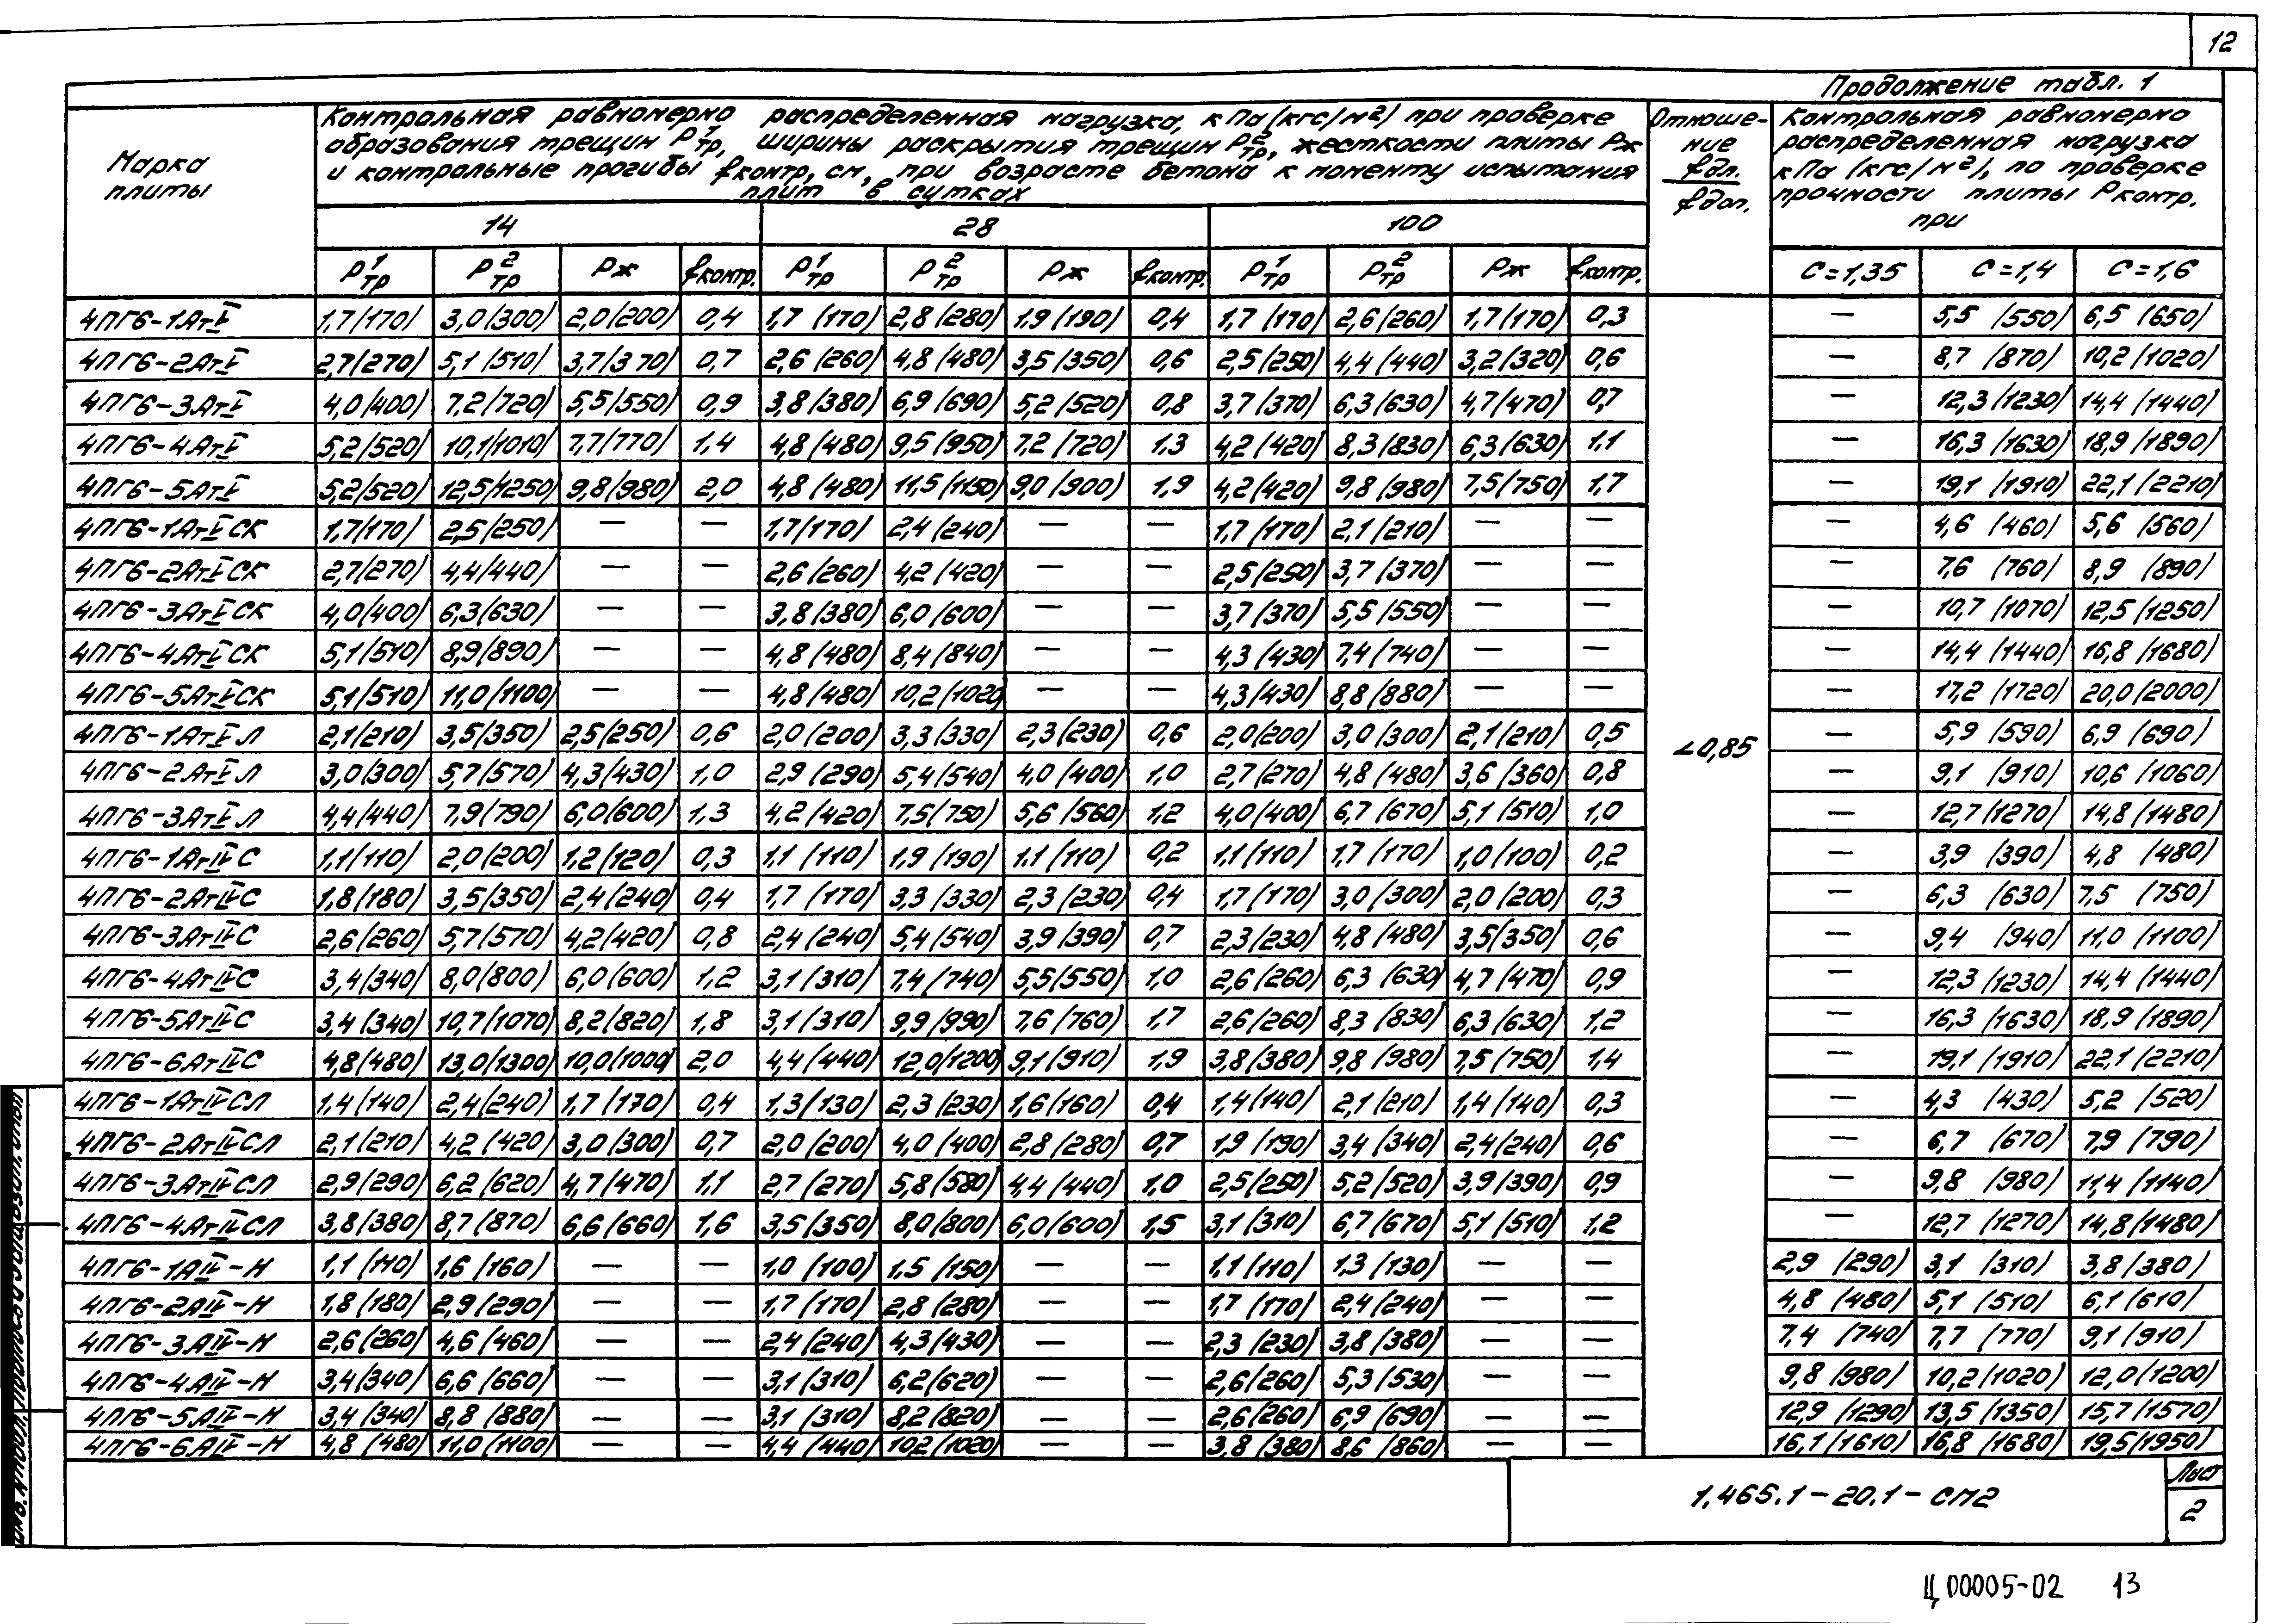 12
Продолжение табл. 1
Марка плиты
Контрольная равномерно распределенная нагрузка, кПа (кгс/м²) при проверке
образования трещин P¹тр, ширины раскрытия трещин P²тр, жесткости плиты Pж
и контрольные прогибы fконтр, см, при возрасте бетона к моменту испытания
плит в сутках
Отноше-
ние
fдл.
fдоп.
Контрольная равномерно
распределенная нагрузка
кПа (кгс/м²), по проверке
прочности плиты Pконтр.
при
14 28 100
P¹тр P²тр Pж fконтр. P¹тр P²тр Pж fконтр. P¹тр P²тр Pж fконтр. C=1,35 C=1,4 C=1,6
4ПГ6-1АтV 1,7(170) 3,0(300) 2,0(200) 0,4 1,7(170) 2,8(280) 1,9(190) 0,4 1,7(170) 2,6(260) 1,7(170) 0,3 — 5,5(550) 6,5(650)
4ПГ6-2АтV 2,7(270) 5,1(510) 3,7(370) 0,7 2,6(260) 4,8(480) 3,5(350) 0,6 2,5(250) 4,4(440) 3,2(320) 0,6 — 8,7(870) 10,2(1020)
4ПГ6-3АтV 4,0(400) 7,2(720) 5,5(550) 0,9 3,8(380) 6,9(690) 5,2(520) 0,8 3,7(370) 6,3(630) 4,7(470) 0,7 — 12,3(1230) 14,4(1440)
4ПГ6-4АтV 5,2(520) 10,1(1010) 7,7(770) 1,4 4,8(480) 9,5(950) 7,2(720) 1,3 4,2(420) 8,3(830) 6,3(630) 1,1 — 16,3(1630) 18,9(1890)
4ПГ6-5АтV 5,2(520) 12,5(1250) 9,8(980) 2,0 4,8(480) 11,5(1150) 9,0(900) 1,9 4,2(420) 9,8(980) 7,5(750) 1,7 — 19,1(1910) 22,1(2210)
4ПГ6-1АтVСК 1,7(170) 2,5(250) — — 1,7(170) 2,4(240) — — 1,7(170) 2,1(210) — — — 4,6(460) 5,6(560)
4ПГ6-2АтVСК 2,7(270) 4,4(440) — — 2,6(260) 4,2(420) — — 2,5(250) 3,7(370) — — — 7,6(760) 8,9(890)
4ПГ6-3АтVСК 4,0(400) 6,3(630) — — 3,8(380) 6,0(600) — — 3,7(370) 5,5(550) — — — 10,7(1070) 12,5(1250)
4ПГ6-4АтVСК 5,1(510) 8,9(890) — — 4,8(480) 8,4(840) — — 4,3(430) 7,4(740) — — — 14,4(1440) 16,8(1680)
4ПГ6-5АтVСК 5,1(510) 11,0(1100) — — 4,8(480) 10,2(1020) — — 4,3(430) 8,8(880) — — — 17,2(1720) 20,0(2000)
4ПГ6-1АтVЛ 2,1(210) 3,5(350) 2,5(250) 0,6 2,0(200) 3,3(330) 2,3(230) 0,6 2,0(200) 3,0(300) 2,1(210) 0,5 <0,85 — 5,9(590) 6,9(690)
4ПГ6-2АтVЛ 3,0(300) 5,7(570) 4,3(430) 1,0 2,9(290) 5,4(540) 4,0(400) 1,0 2,7(270) 4,8(480) 3,6(360) 0,8 — 9,1(910) 10,6(1060)
4ПГ6-3АтVЛ 4,4(440) 7,9(790) 6,0(600) 1,3 4,2(420) 7,5(750) 5,6(560) 1,2 4,0(400) 6,7(670) 5,1(510) 1,0 — 12,7(1270) 14,8(1480)
4ПГ6-1АтIVС 1,1(110) 2,0(200) 1,2(120) 0,3 1,1(110) 1,9(190) 1,1(110) 0,2 1,1(110) 1,7(170) 1,0(100) 0,2 — 3,9(390) 4,8(480)
4ПГ6-2АтIVС 1,8(180) 3,5(350) 2,4(240) 0,4 1,7(170) 3,3(330) 2,3(230) 0,4 1,7(170) 3,0(300) 2,0(200) 0,3 — 6,3(630) 7,5(750)
4ПГ6-3АтIVС 2,6(260) 5,7(570) 4,2(420) 0,8 2,4(240) 5,4(540) 3,9(390) 0,7 2,3(230) 4,8(480) 3,5(350) 0,6 — 9,4(940) 11,0(1100)
4ПГ6-4АтIVС 3,4(340) 8,0(800) 6,0(600) 1,2 3,1(310) 7,4(740) 5,5(550) 1,0 2,6(260) 6,3(630) 4,7(470) 0,9 — 12,3(1230) 14,4(1440)
4ПГ6-5АтIVС 3,4(340) 10,7(1070) 8,2(820) 1,8 3,1(310) 9,9(990) 7,6(760) 1,7 2,6(260) 8,3(830) 6,3(630) 1,2 — 16,3(1630) 18,9(1890)
4ПГ6-6АтIVС 4,8(480) 13,0(1300) 10,0(1000) 2,0 4,4(440) 12,0(1200) 9,1(910) 1,9 3,8(380) 9,8(980) 7,5(750) 1,4 — 19,1(1910) 22,1(2210)
4ПГ6-1АтIVСЛ 1,4(140) 2,4(240) 1,7(170) 0,4 1,3(130) 2,3(230) 1,6(160) 0,4 1,4(140) 2,1(210) 1,4(140) 0,3 — 4,3(430) 5,2(520)
4ПГ6-2АтIVСЛ 2,1(210) 4,2(420) 3,0(300) 0,7 2,0(200) 4,0(400) 2,8(280) 0,7 1,9(190) 3,4(340) 2,4(240) 0,6 — 6,7(670) 7,9(790)
4ПГ6-3АтIVСЛ 2,9(290) 6,2(620) 4,7(470) 1,1 2,7(270) 5,8(580) 4,4(440) 1,0 2,5(250) 5,2(520) 3,9(390) 0,9 — 9,8(980) 11,4(1140)
4ПГ6-4АтIVСЛ 3,8(380) 8,7(870) 6,6(660) 1,6 3,5(350) 8,0(800) 6,0(600) 1,5 3,1(310) 6,7(670) 5,1(510) 1,2 — 12,7(1270) 14,8(1480)
4ПГ6-1АIV-Н 1,1(110) 1,6(160) — — 1,0(100) 1,5(150) — — 1,1(110) 1,3(130) — — 2,9(290) 3,1(310) 3,8(380)
4ПГ6-2АIV-Н 1,8(180) 2,9(290) — — 1,7(170) 2,8(280) — — 1,7(170) 2,4(240) — — 4,8(480) 5,1(510) 6,1(610)
4ПГ6-3АIV-Н 2,6(260) 4,6(460) — — 2,4(240) 4,3(430) — — 2,3(230) 3,8(380) — — 7,4(740) 7,7(770) 9,1(910)
4ПГ6-4АIV-Н 3,4(340) 6,6(660) — — 3,1(310) 6,2(620) — — 2,6(260) 5,3(530) — — 9,8(980) 10,2(1020) 12,0(1200)
4ПГ6-5АIV-Н 3,4(340) 8,8(880) — — 3,1(310) 8,2(820) — — 2,6(260) 6,9(690) — — 12,9(1290) 13,5(1350) 15,7(1570)
4ПГ6-6АIV-Н 4,8(480) 11,0(1100) — — 4,4(440) 10,2(1020) — — 3,8(380) 8,6(860) — — 16,1(1610) 16,8(1680) 19,5(1950)
1.465.1-20.1-СМ2
Лист
2
Ц00005-02 13